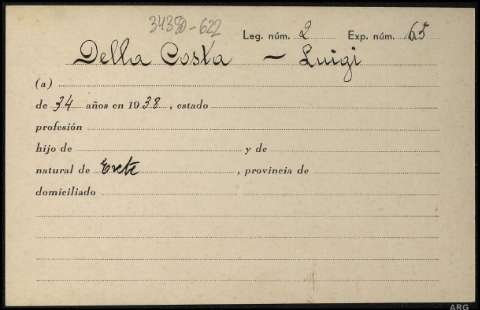 34380-622
Leg. núm. 2 Exp. núm. 65
Della Costa - Luigi
(a)
de 34 años en 1938, estado
profesión
hijo de y de
natural de Erete, provincia de
domiciliado
ARG